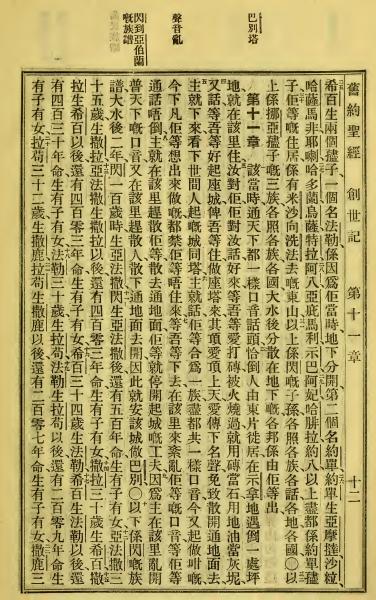 舊約聖經 創世記 第十一章 十二
巴別塔
聲音亂
閃到亞伯蘭
嘅族譜
希百生兩個孻子一個名法勒係因爲佢當時地下分開第二個名約單約單生亞摩撻沙粒
哈薩馬非耶喇哈多蘭烏薩特拉阿八亞庇馬利示巴阿妃哈腓拉約八以上盡都係約單孻
子佢等嘅住居係有米沙向洗法去嘅東山以上係閃嘅子孫各照各族各話各地各國〇以
上係挪亞孻子嘅三族各照各族各國大水後分散在地下嘅各邦係由佢等出
第十一章 該當時通天下都一樣口音話頭恰倒人由東片徙居在示拿地遇倒一處坪
地就在該里住汝對𠊎𠊎對汝話好來吾等愛打磚被火燒過就用磚當石用地油當灰坭
又話等吾等好起座城俾吾等住做座塔來其項愛頂上天愛傳下名聲免致散開通地面去
主就下來看下世間人起嘅城同塔主就話佢等合爲一族盡都共一樣口音今又起做咁嘅
今下凡佢等想出來做嘅都禁佢等唔住來等吾等下去在該里來紊亂佢等嘅口音等佢等
通話唔倒主就在該里趕散佢等散去通地面佢等就停開起城嘅工夫因爲主在該里亂開
普天下嘅口音又在該里趕散人散下通地面去開因此就安該城做巴別〇以下係閃嘅族
譜大水後二年閃一百歲時生亞法撒閃生亞法撒後還有五百年命生有子有女亞法撒三
十五歲生撒拉亞法撒生撒拉以後還有四百零三年命生有子有女撒拉三十歲生希百撒
拉生希百以後還有四百零三年命生有子有女希百三十四歲生法勒希百生法勒以後還
有四百三十年命生有子有女法勒三十歲生拉荀法勒生拉荀以後還有二百零九年命生
有子有女拉荀三十二歲生撒鹿拉荀生撒鹿以後還有二百零七年命生有子有女撒鹿三